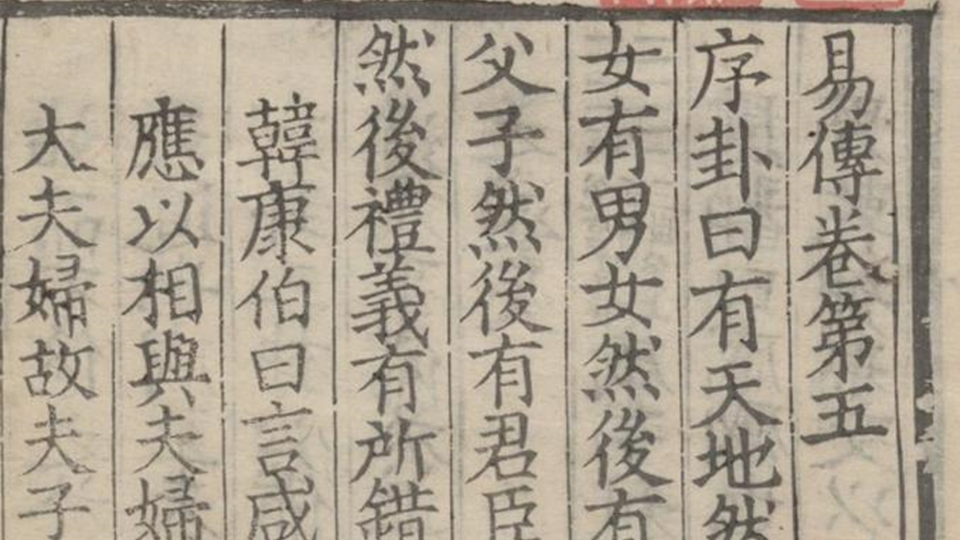 易傳卷第五
序卦曰有天地然
女有男女然後有
父子然後有君臣
然後禮義有所錯
韓康伯曰言咸
應以相與夫婦
大夫婦故夫子